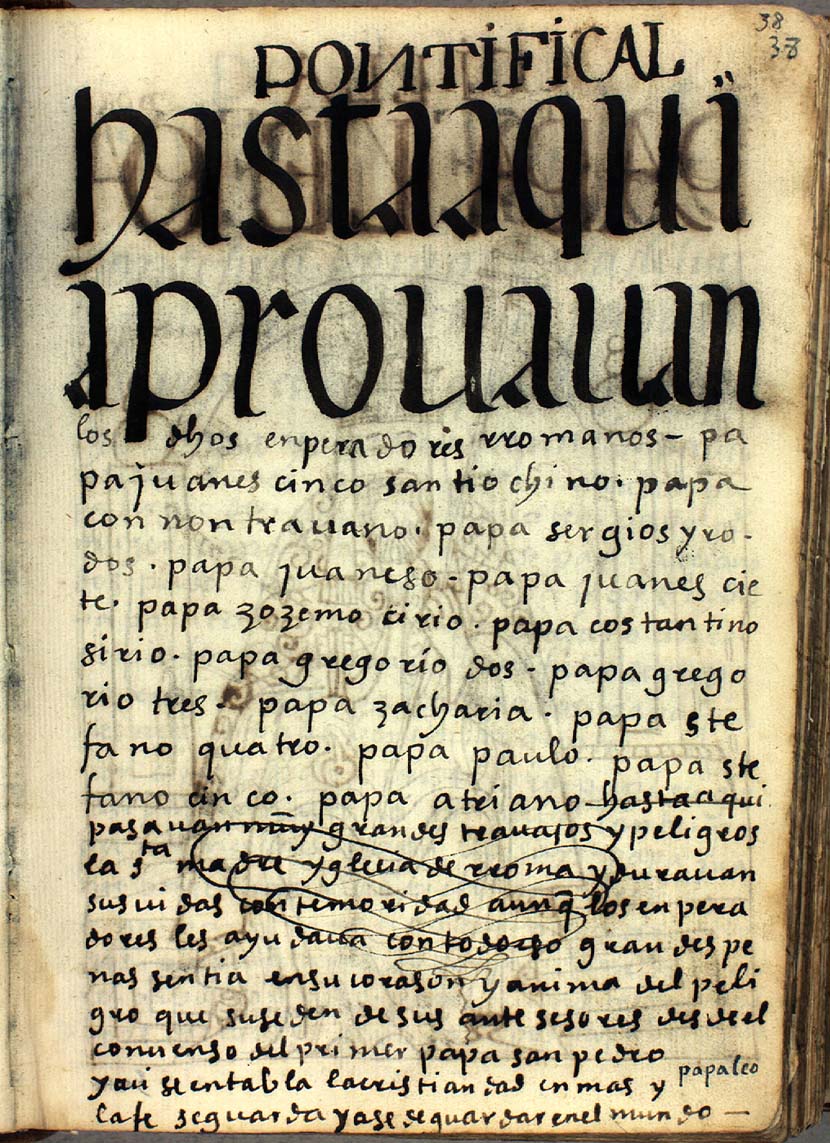 38
37
PONTIFICAL
hastaaqui
aprouauan
los dhos enperadores rromanos – pa
pa juanes cinco santiochino · papa
connontrauano · papa sergiosyro
dos · papa juaneso · papa juanes cie
te · papa zozemo cirio · papa costantino
sirio · papa gregorio dos · papa grego
rio tres · papa zacharia · papa ste
fano quatro · papa paulo · papa ste
fano cinco · papa atriano hasta aqui
pasauan muy grandes trauajos y peligros
la sta madre yglecia de rroma y durauan
sus uidas con temoridad aunq̃ los enpera
dores les ayudaua con todo eso grandes pe
nas sentia en su corason y anima del peli
gro que suseden de sus antesesores desde el
comienso del primer papa san pedro
y aci se entabla la cristiandad en mas y
papa leo
la fe se guarda y a se de guardar en el mundo —